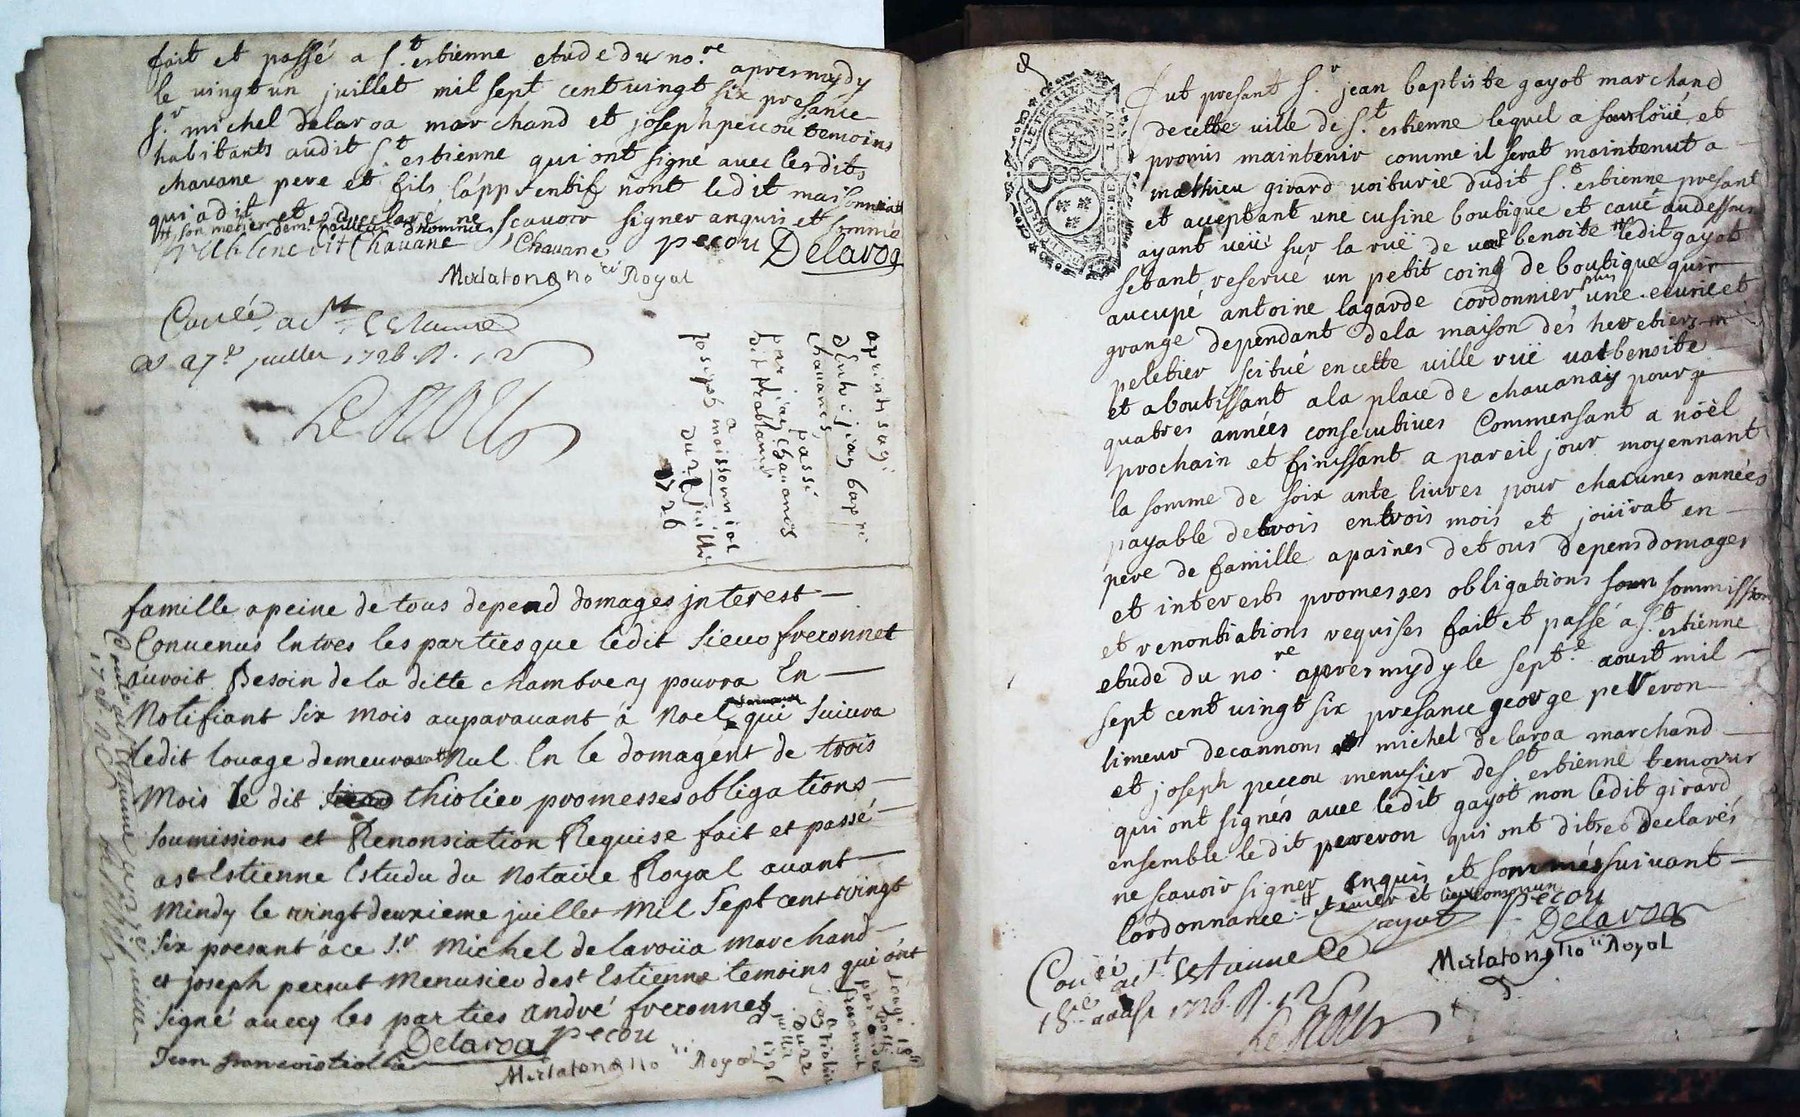 fait et passé a s.t estienne etude du no.re apresmydy
le vingt un juillet mil sept cent vingt six presance
s.r michel delaroa marchand et joseph pecou temoins
habitants audit s.t estienne qui ont signé avec lesdits
chavane pere et fils l'apprentif nont ledit maisonnial
qui a dit et declaré ne scavoir signer anquis et sommé
chavane Chavane pecou Delaroa
Merlatona no.re Royal
a 27.e juillet 1726 R. 12
aprintisagi
chavanes
passé
par jean chavanes
a maissonnial
du 21 juillet
1726
famille a peine de tous depend domages jnterest
Convenus Entres les parties que ledit sieur freronnet
auroit Besoin de la ditte chambre y pouvra En
Notifiant six mois auparavant a Noel qui suivra
ledit louage demeurera Nul En le domagent de trois
Mois le dit thiolier promesses obligations
soumissions et Renonsiation Requise fait et passé
a st Estienne Estudu du Notaire Royal avant
Mindy le vingt deuxieme juillet Mil sept cent vingt
six presant à ce s.r Michel delaroüa marchand
et joseph pecout Menusier de st Estienne temoins qui ónt
signé avecq les parties andré freronnet
Delaroa pecou
Jean francois tiollier Merlatona no.re Royal
fut presant s.r jean baptiste gayot marchand
de cette ville de s.t estienne lequel a sourloüé et
promis maintenir comme il serat maintenut a
mathieu girard voiturie dudit s.t estienne presant
et acceptant une cusine boutique et cave au dessous
ayant veüe sur la ruë de val benoite ledit gayot
sétant reservé un petit coing de boutique quis
aucupé antoine lagarde cordonnier plus une ecurie et
grange dependant de la maison des heretiers
peletier scitué en cette ville ruë val benoite
et aboutissant a la place de chavanay pour
quatres années consecutives Commensant a nöel
prochain et finissant a pareil jour moyennant
la somme de soix ante livres pour chacunes années
payable de trois en trois mois et joüirat en
pere de famille a paines de tous depens domages
et interests promesses obligations sommission
et renontiations requises fait et passé a s.t estienne
etude du no.re apresmydy le sept.e aoust mil
sept cent vingt six presance george peveron
limeur de cannons michel delaroa marchand
et joseph peccou menusier de s.t estienne temoins
qui ont signés avec ledit gayot non ledit girard
ensemble ledit peveron qui ont dit et declarés
ne scavoir signer enquis et sommés suivant
lordonnance
gayot pecou
Delaroa
Merlatona no.re Royal
18.e aoust 1726 R. 12